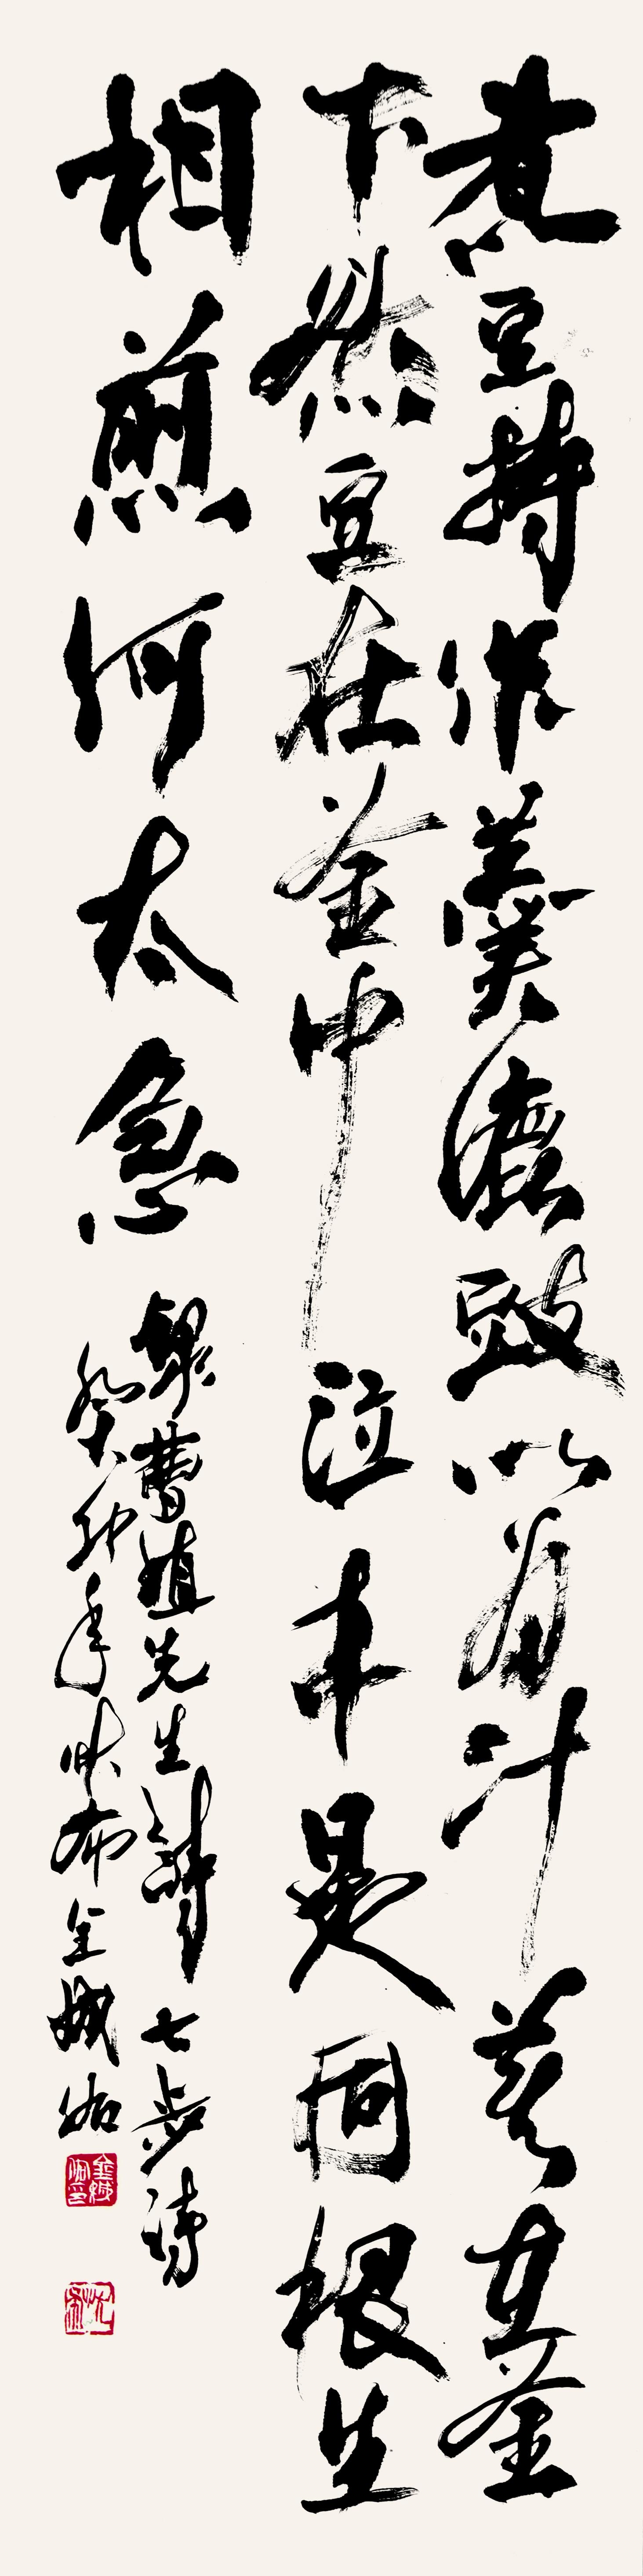 煮豆持作羹漉豉以為汁萁在釜
下然豆在釜中泣本是同根生
相煎何太急
録曹植先生七步詩
癸卯年秋金城